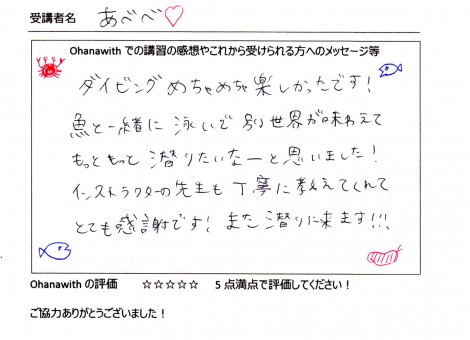 受講者名 あべべ♡
Ohanawith での講習の感想やこれから受けられる方へのメッセージ等
ダイビングめちゃめちゃ楽しかったです!
魚と一緒に泳いで別世界が味わえて
もっともっと潜りたいなーと思いました!
インストラクターの先生も丁寧に教えてくれて
とても感謝です!また潜りに来ます!!!
Ohanawith の評価 ☆☆☆☆☆ 5 点満点で評価してください!
ご協力ありがとうございました!